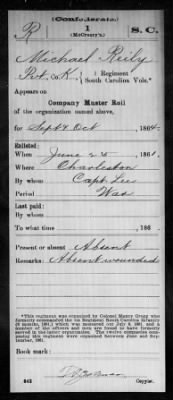 (Confederate)
R 1 S. C.
(McCreary's)
Michael Reily
Pvt, Co. K, 1 Regiment
South Carolina Vols.*
Appears on
Company Muster Roll
of the organization named above,
for Sept & Oct, 1864.
Enlisted:
When June 25, 1861.
Where Charleston
By whom Capt. Lee
Period War
Last paid:
By whom
To what time , 186 .
Present or absent Absent
Remarks: Absent wounded
*This regiment was organized by Colonel Maxcy Gregg who
formerly commanded the 1st Regiment South Carolina Infantry
(6 months, 1861) which was mustered out July 9, 1861, and a
number of the officers and men are found to have formerly
served in the latter organization. The twelve companies composing
this regiment were organized between June and September,
1861.
Book mark:
(642) Copyist.